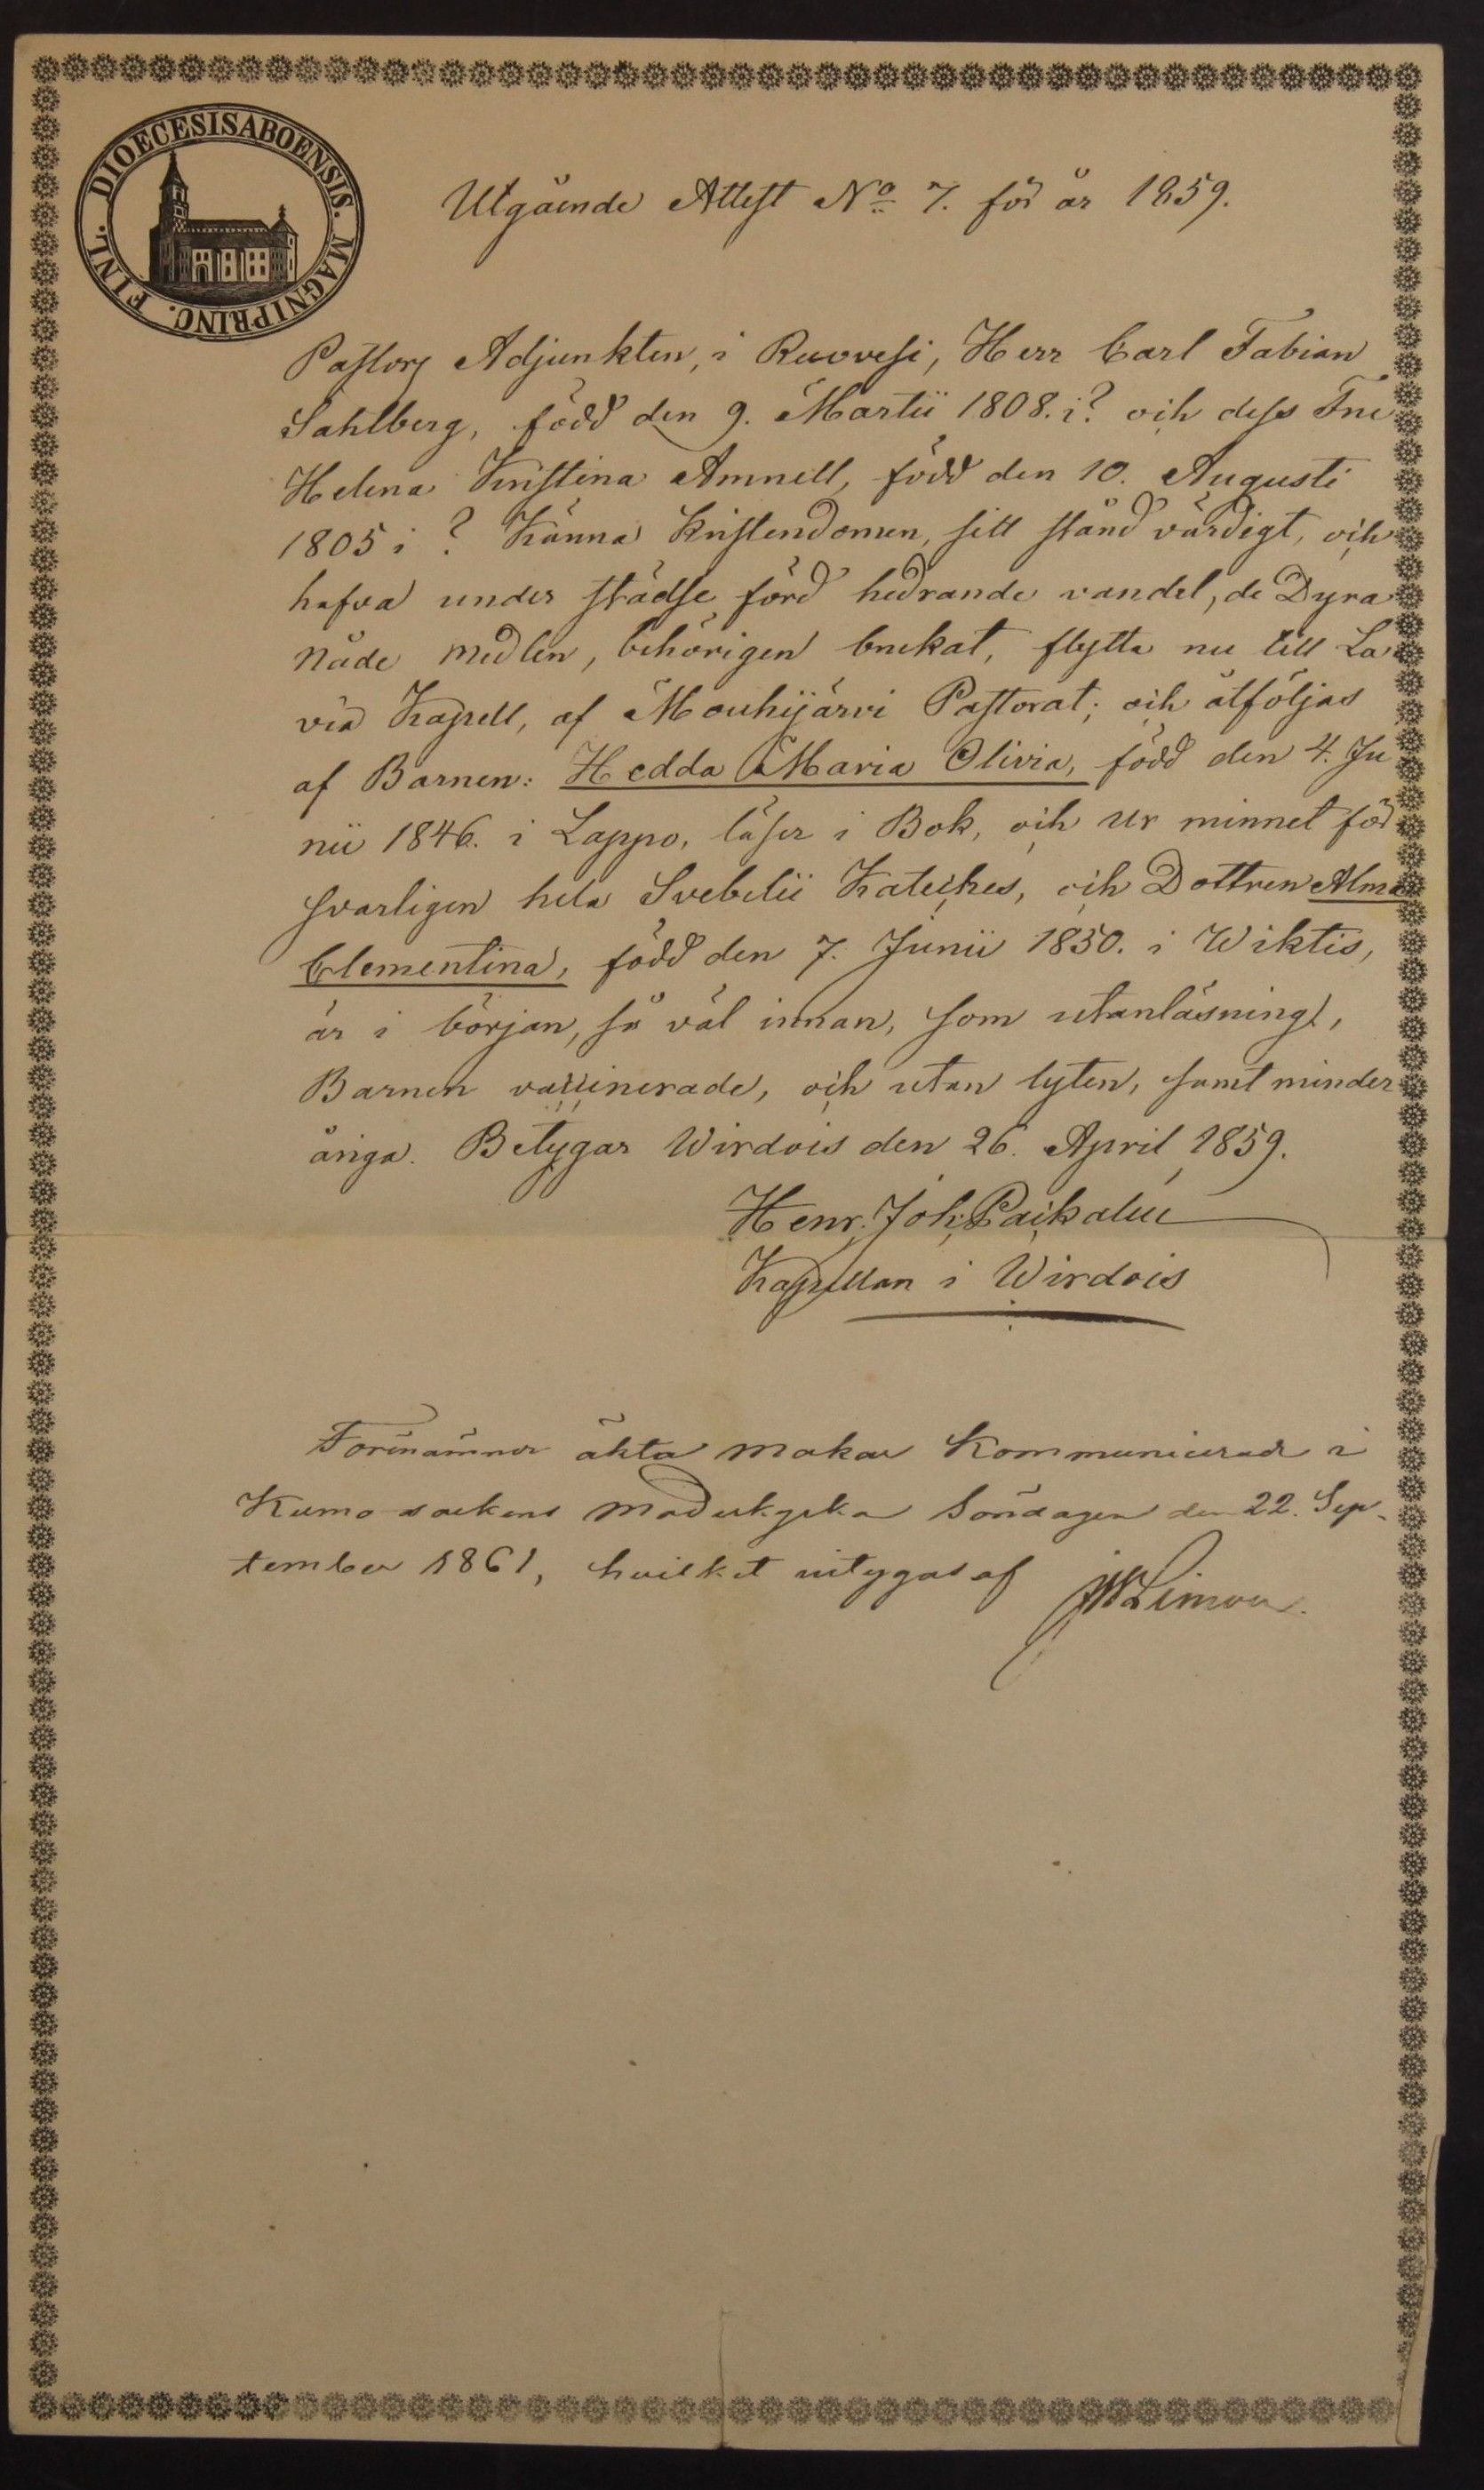 DIOECESIS ABOENSIS. MAGNI PRINC. FINL.
Utgående Attest No 7. för år 1859.
Pastors Adjunkten, i Ruovesi, Herr Carl Fabian
Sahlberg, född den 9. Martii 1808. i? och dess Fru
Helena Kristina Amnell, född den 10. Augusti
1805 i ? Känna Kristendomen, sitt stånd värdigt, och
hafva under städse förd hedrande vandel, de Dyra
Nåde medlen, behörigen brukat, flytta nu till La
via Kapell, af Mouhijärvi Pastorat; och åtföljas
af Barnen: Hedda Maria Olivia, född den 4. Ju
nii 1846. i Lappo, läser i Bok, och ur minnet för
svarligen hela Svebelii Kateches, och Dottren Alma
Clementina, född den 7. Junii 1850. i Wiktis,
är i början, så väl innan, som utanläsning,
Barnen vaccinerade, och utan lyten, samt minder
åriga. Betygar Wirdois den 26. April 1859.
Henr. Joh. Paikalen
Kapellan i Wirdois
Förenämnde äkta makar kommunicerade i
Kumo sockens moderkyrka Söndagen den 22. Sep-
tember 1861, hvilket intygas af